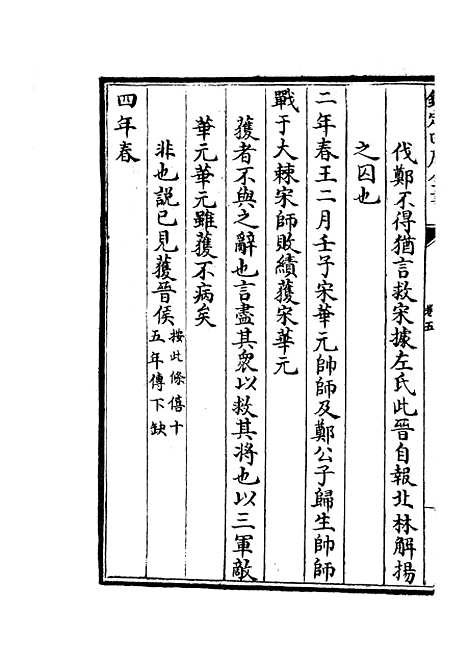 欽定四庫全書
卷五
伐鄭不得猶言救宋據左氏此晉自報北林解揚
之囚也
二年春王二月壬子宋華元帥師及鄭公子歸生帥師
戰于大棘宋師敗績獲宋華元
獲者不與之辭也言盡其衆以救其將也以三軍敵
華元華元雖獲不病矣
非也說已見獲晉侯按此條僖十
五年傳下缺
四年春